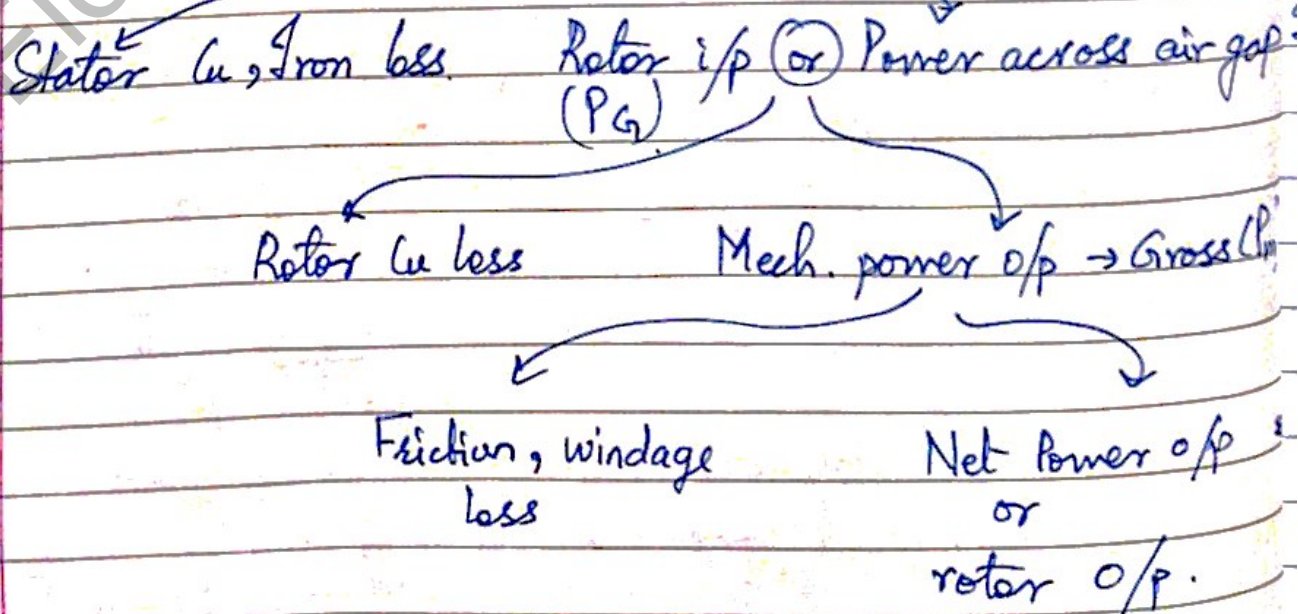 Stator Cu, Iron loss. Rotor i/p or Power across air gap
(PG)
Rotor Cu loss Mech. power o/p → Gross (Pm
Friction, windage Net Power o/p
loss or
rotor O/p.